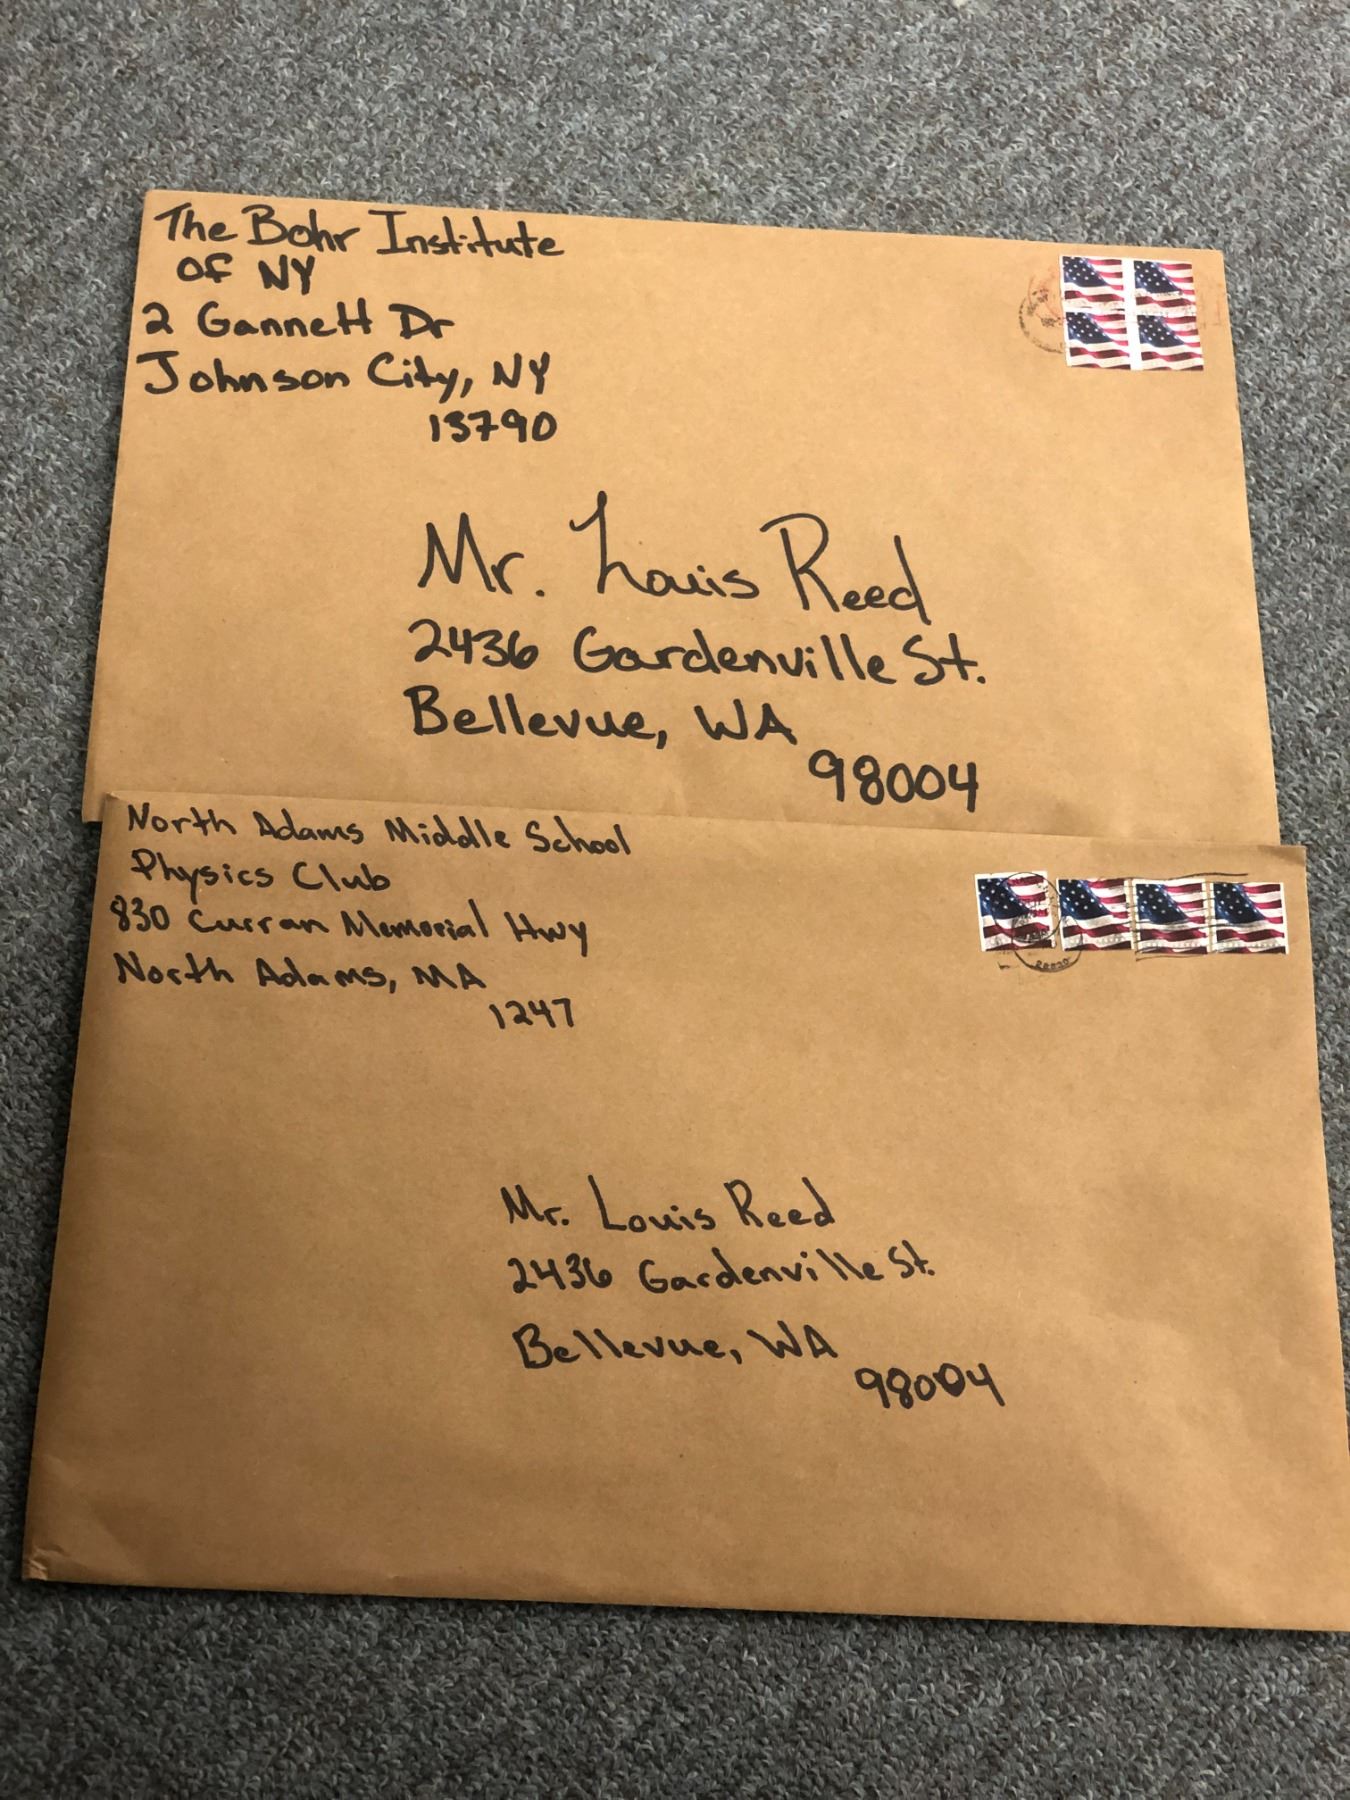 The Bohr Institute
of NY
2 Gannett Dr
Johnson City, NY
13790
Mr. Louis Reed
2436 Gardenville St.
Bellevue, WA
98004
North Adams Middle School
Physics Club
830 Curran Memorial Hwy
North Adams, MA
1247
Mr. Louis Reed
2436 Gardenville St.
Bellevue, WA
98004